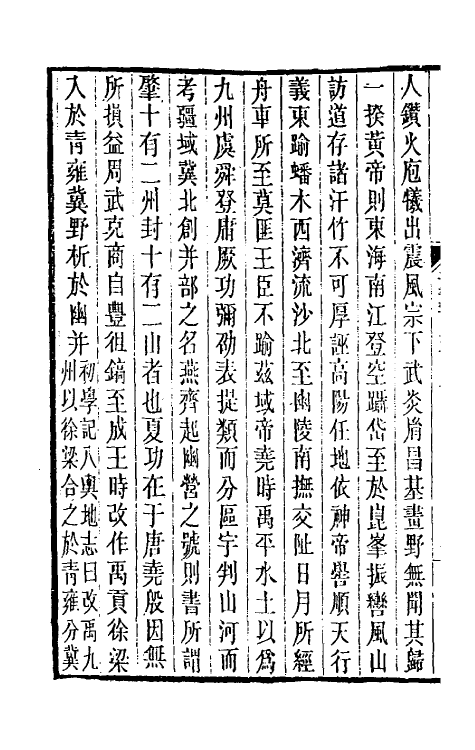 人鑽火庖犧出震風宗下武炎胤昌基畫野無聞其歸
一揆黃帝則東海南江登空躡岱至於崑峯振轡風山
訪道存諸汗竹不可厚誣高陽任地依神帝嚳順天行
義東踰蟠木西濟流沙北至幽陵南撫交阯日月所經
舟車所至莫匪王臣不踰茲域帝堯時禹平水土以爲
九州虞舜登庸厥功彌劭表提類而分區宇判山河而
考疆域冀北創并部之名燕齊起幽營之號則書所謂
肇十有二州封十有二山者也夏功在于唐堯殷因無
所損益周武克商自豐徂鎬至成王時改作禹貢徐梁
入於青雍冀野析於幽并
初學記八輿地志曰改禹九
州以徐梁合之於青雍分冀